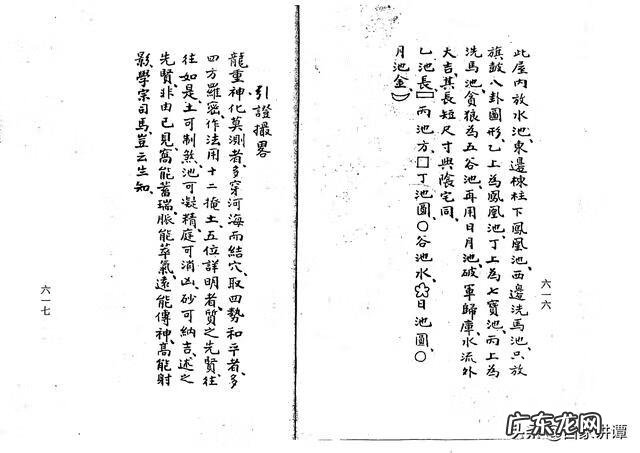 此屋內放水池、東邊棟柱下鳳凰池、西邊洗馬池、只放
旗鼓八卦圖形、乙上為鳳凰池、丁上為七寶池、丙上為
洗馬池、貪狼為五谷池、再用日月池、破軍歸庫、水流外
大吉、其長短尺寸與陰宅同、
乙池長▭丙池方□丁池圓○谷池水日池圓○
月池金
六一六
引證撮畧
龍重神化莫測者、多穿河海而結穴、取四勢和平者、多
四方羅密、作法用十二掩土、五位詳明者、質之先賢、往
往如是、土可制煞、池可凝精、庭可消凶、砂可納吉、述之
先賢、非由己見、窩能蓄瑞、脈能萃氣、遠能傳神、高能射
影、學宗司馬、豈云生知、
六一七
广东龙网